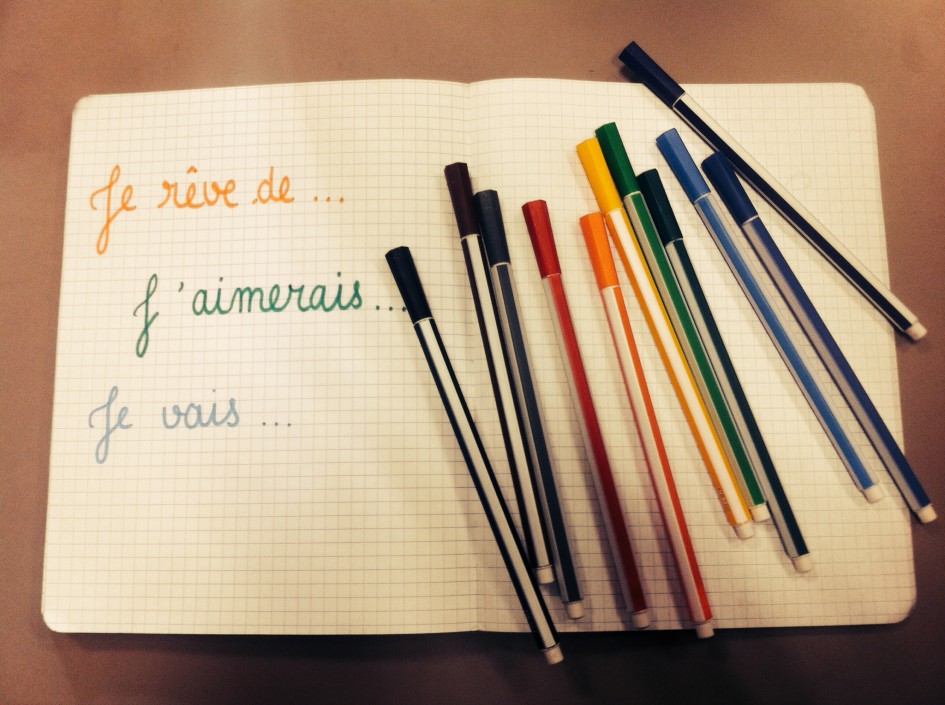 Je rêve de ...
J'aimerais ...
Je vais ...